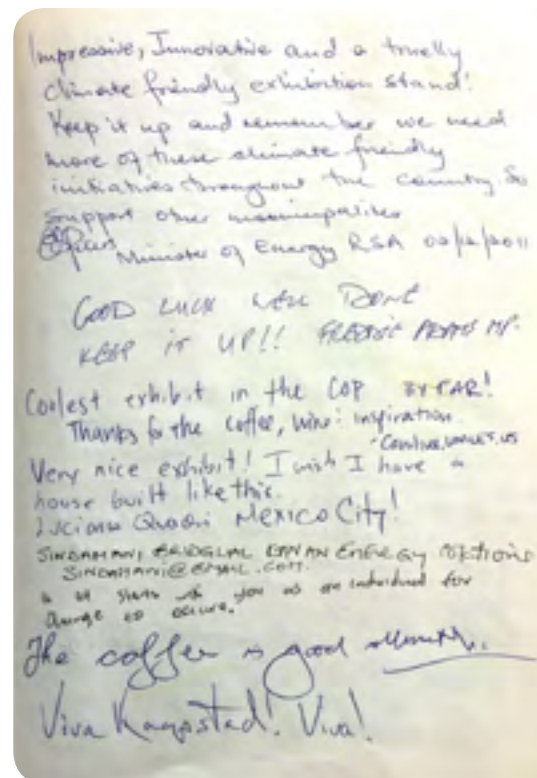 Impressive, Innovative and a truelly
climate friendly exhibition stand!
Keep it up and remember we need
more of these climate friendly
initiatives throughout the country. So
support other municipalities
Minister of Energy RSA 02/12/2011
GOOD LUCK WELL DONE
KEEP IT UP!! MP.
Coolest exhibit in the COP BY FAR!
Thanks for the coffee, wine: inspiration.
Very nice exhibit! I wish I have a
house built like this.
Luciano Mexico City!
SINDAMANI ENERGY
SINDAMANI@GMAIL.COM.
it starts with you as an individual for
change to occur.
The coffee is good
Viva Kaapstad! Viva!